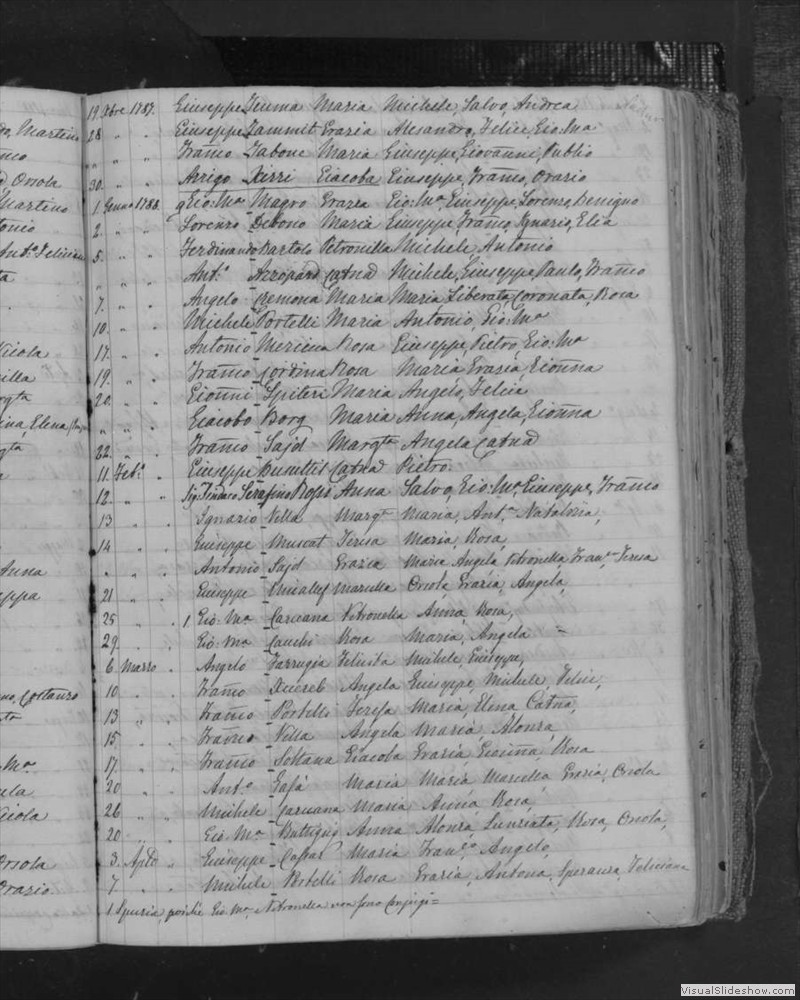 Martino
Orsola
Martino
tonio
Ant.º Felicia
ta
Nicola
illa
Elena
gta
Anna
eppa
Costanzo
Mª
ela
Nicola
Orsola
Orazio
19 Xbre 1787. Giuseppe Teuma Maria Michele, Salvo, Andrea
28 " " Giuseppe Zammit Grazia Alesandro, Felice, Gio: Ma
" " Franco Tabone Maria Giuseppe, Giovanni, Publio
30. " " Arrigo Xirri Giacoba Giuseppe, Franco, Orazio
1. Genn.º 1788. Gio: Mª Magro Grazia Gio: Mª, Giuseppe, Lorenzo, Benigno
2. " " Lorenzo Debono Maria Giuseppe, Franco, Ignazio, Elia
5. " " Ferdinando Bartolo Petronilla Michele, Antonio
" " Ant.º Azzopard Catna Michele, Giuseppe, Paulo, Franco
7. " " Angelo Cremona Maria Maria, Liberata, Coronata, Rosa
10. " " Michele Portelli Maria Antonio, Gio: Mª
17. " " Antonio Meriecca Rosa Giuseppe, Pietro, Gio: Mª
19. " " Franco Cordina Rosa Maria, Grazia, Gionna
20. " " Gionni Spiteri Maria Angelo, Felice
" " Giacobo Borg Maria Anna, Angela, Gionna
22. " " Franco Sajd Margta Angela Catna
11. Feb.º " Giuseppe Catna Pietro.
12. " " Sig. Sindaco Serafino Ropsi Anna Salvo, Gio: Mª, Giuseppe, Franco
13 " " Ignazio Villa Margta Maria, Ant.ª Natalizia,
14 " " Giuseppe Muscat Teresa Maria, Rosa,
" " Antonio Sajd Grazia Maria Angela, Petronella, Franca, Teresa
21 " " Giuseppe Micallef Marcella Orsola, Grazia, Angela,
25 " " 1 Gio: Mª Caruana Petronella Anna, Rosa,
29. " " Gio: Mª Cauchi Rosa Maria, Angela =
6 Marzo " Angelo Farrugia Felicita Michele, Giuseppe,
10 " " Franco Xuereb Angela Giuseppe, Michele, Felice,
13 " " Franco Portelli Teresa Maria, Elena, Catna,
15 " " Franco Villa Angela Maria, Alonza
17. " " Franco Soltana Giacoba Grazia, Gionna, Rosa
20 " " Ant.º Gafà Maria Maria, Marcella, Grazia, Orsola
26 " " Michele Caruana Maria Anna, Rosa,
20 " " Gio: Mª Buttigig Anna Alonza, Lunziata, Rosa, Orsola,
3. Aple " Giuseppe Cassar Maria Franco, Angelo,
7 " " Michele Portelli Rosa Grazia, Antona, Speranza, Feliciana
1. Spuria, poichè Gio: Mª e Petronella non sono Conjugi =
VisualSlideshow.com